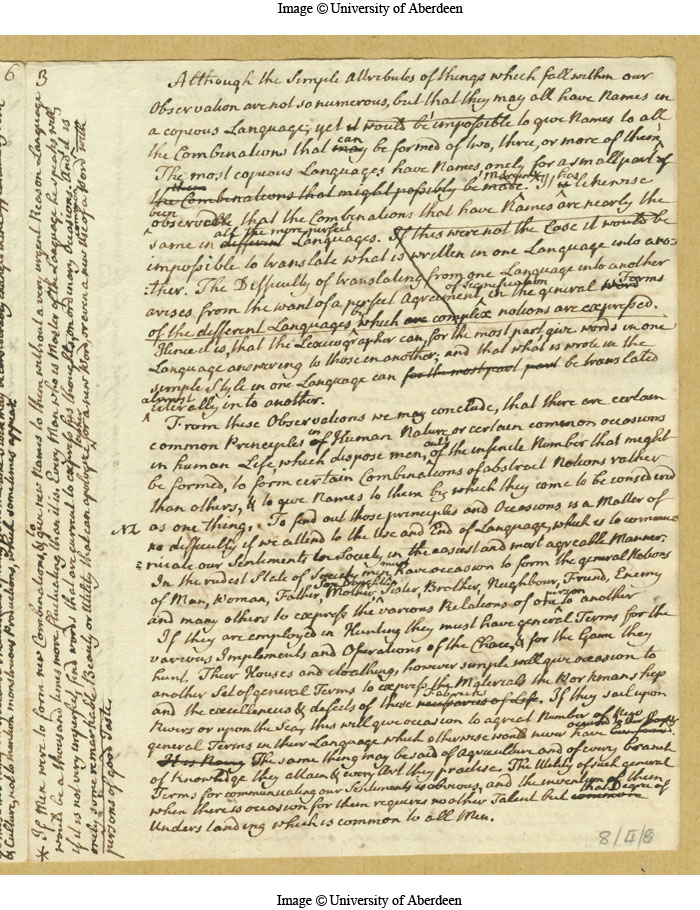 Image © University of Aberdeen
6
3
Although the simple Attributes of things which fall within our
Observation are not so numerous, but that they may all have Names in
a copious Language, yet it would be impossible to give Names to all
the Combinations that may can be formed of two, three, or more of them
The most copious Languages have Names onely for a small part of
them
the Combinations that might possibly be made. It is has likewise
been
observed that the Combinations that have Names are nearly the
same in different all the more perfect Languages. If this were not the Case it would be
impossible to translate what is written in one Language into ano-
:ther. The Difficulty of translating from one Language into another
arises from the want of a perfect Agreement of signification in the general word Terms
of the different Languages, by which are complex notions are expressed.
Hence it is, that the Lexicographer can, for the most part, give words in one
Language answering to those in another; and that what is wrote in the
simple Style in one Language can for the most part be translated
almost
literally into another.
From these Observations we may conclude, that there are certain
common Principles of in Human Nature, or certain common occasions
in human Life, which dispose men, out of the infinite Number that might
be formed, to form certain Combinations of abstract Notions rather
than others, & to give Names to them by which they come to be considered
as one thing. To find out those principles and Occasions is a Matter of
no difficulty if we attend to the Use and End of Language, which is to commu-
:nicate our Sentiments in Society, in the easiest and most agreable Manner.
In the rudest State of Society men must have occasion to form the general Notions
of Man, Woman, Father, Mother, Son Daughter Sister, Brother, Neighbour, Friend, Enemy
and many others to express the various Relations of one person to another
If they are employed in Hunting they must have general Terms for the
various Implements and Operations of the Chace, & for the Game they
hunt. Their Houses and cloathing, however simple will give occasion to
another Set of general Terms to express the Materials the Workmanship
and the excellencies & defects of those Fabricks necessaries of Life. If they sail upon
Rivers or upon the Sea, this will give occasion to a great Number of New
general Terms in their Language which otherwise would never have
The same thing may be said of Agriculture and of every branch
of Knowledge they attain & every Art they practise. The Utility of such general
Terms for communicating our Sentiments is obvious, and the invention of them
when there is occasion for them requires no other Talent but common that Degree of
Understanding which is common to all Men.
8/II/8
* If Men were to form new Combinations, & give new Names to them without a very urgent Reason Language
would be a thousand times more fluctuating than it is. Every Man who is Master of the Language he speaks will
if it is not very imperfect find words that are current to express his thoughts, on ordinary occasions. And it is
onely some remarkable Beauty or Utility that can apologize for a new Word, or even a new Use of a Word with
persons of good Taste.
& Culture, not to mention monstruous Productions, which sometimes appear.
Image © University of Aberdeen